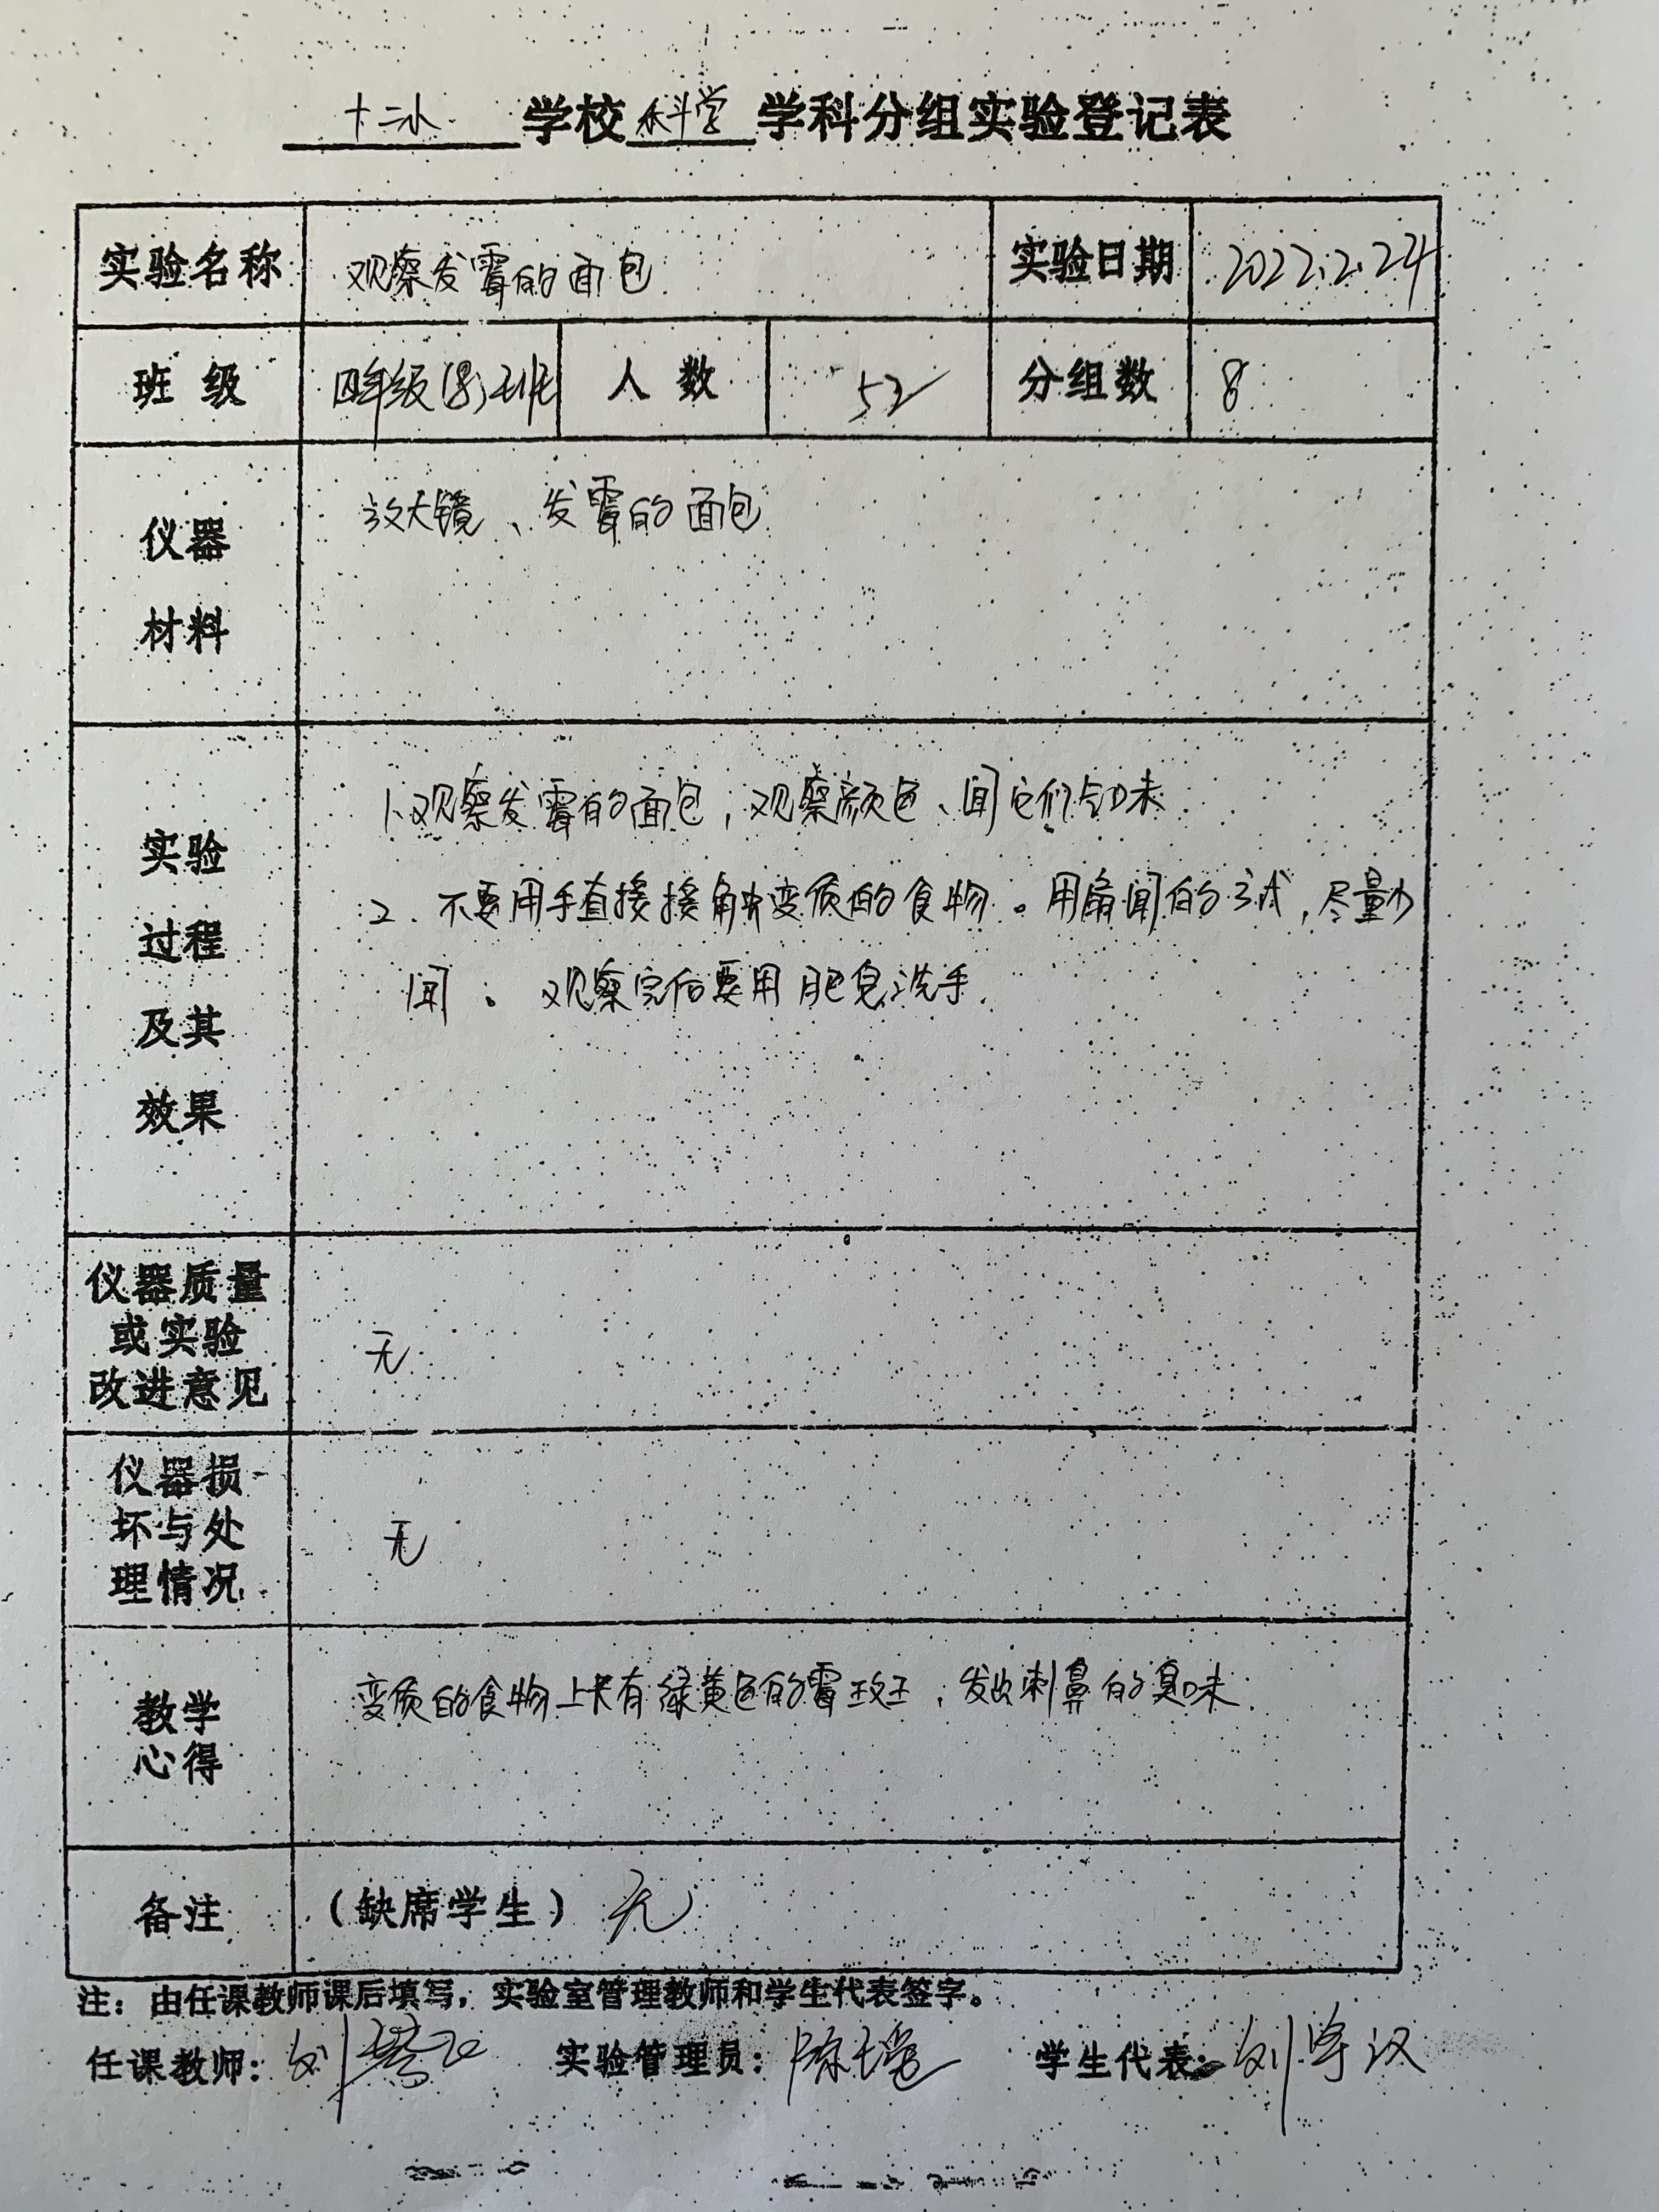 十二小 学校 科学 学科分组实验登记表
实验名称 观察发霉的面包 实验日期 2022.2.24
班 级 四年级(8)班 人 数 52 分组数 8
仪器 放大镜、发霉的面包
材料
1、观察发霉的面包，观察颜色、闻它们气味
实验
2. 不要用手直接接触变质的食物。用扇闻的方式，尽量少
过程
闻。观察完后要用肥皂洗手.
及其
效果
仪器质量
或实验 无
改进意见
仪器损
坏与处 无
理情况
教学 变质的食物上长有绿黄色的霉斑，发出刺鼻的臭味.
心得
备注 （缺席学生） 无
注：由任课教师课后填写，实验室管理教师和学生代表签字。
任课教师：刘 实验管理员：陈 学生代表：刘宇汉